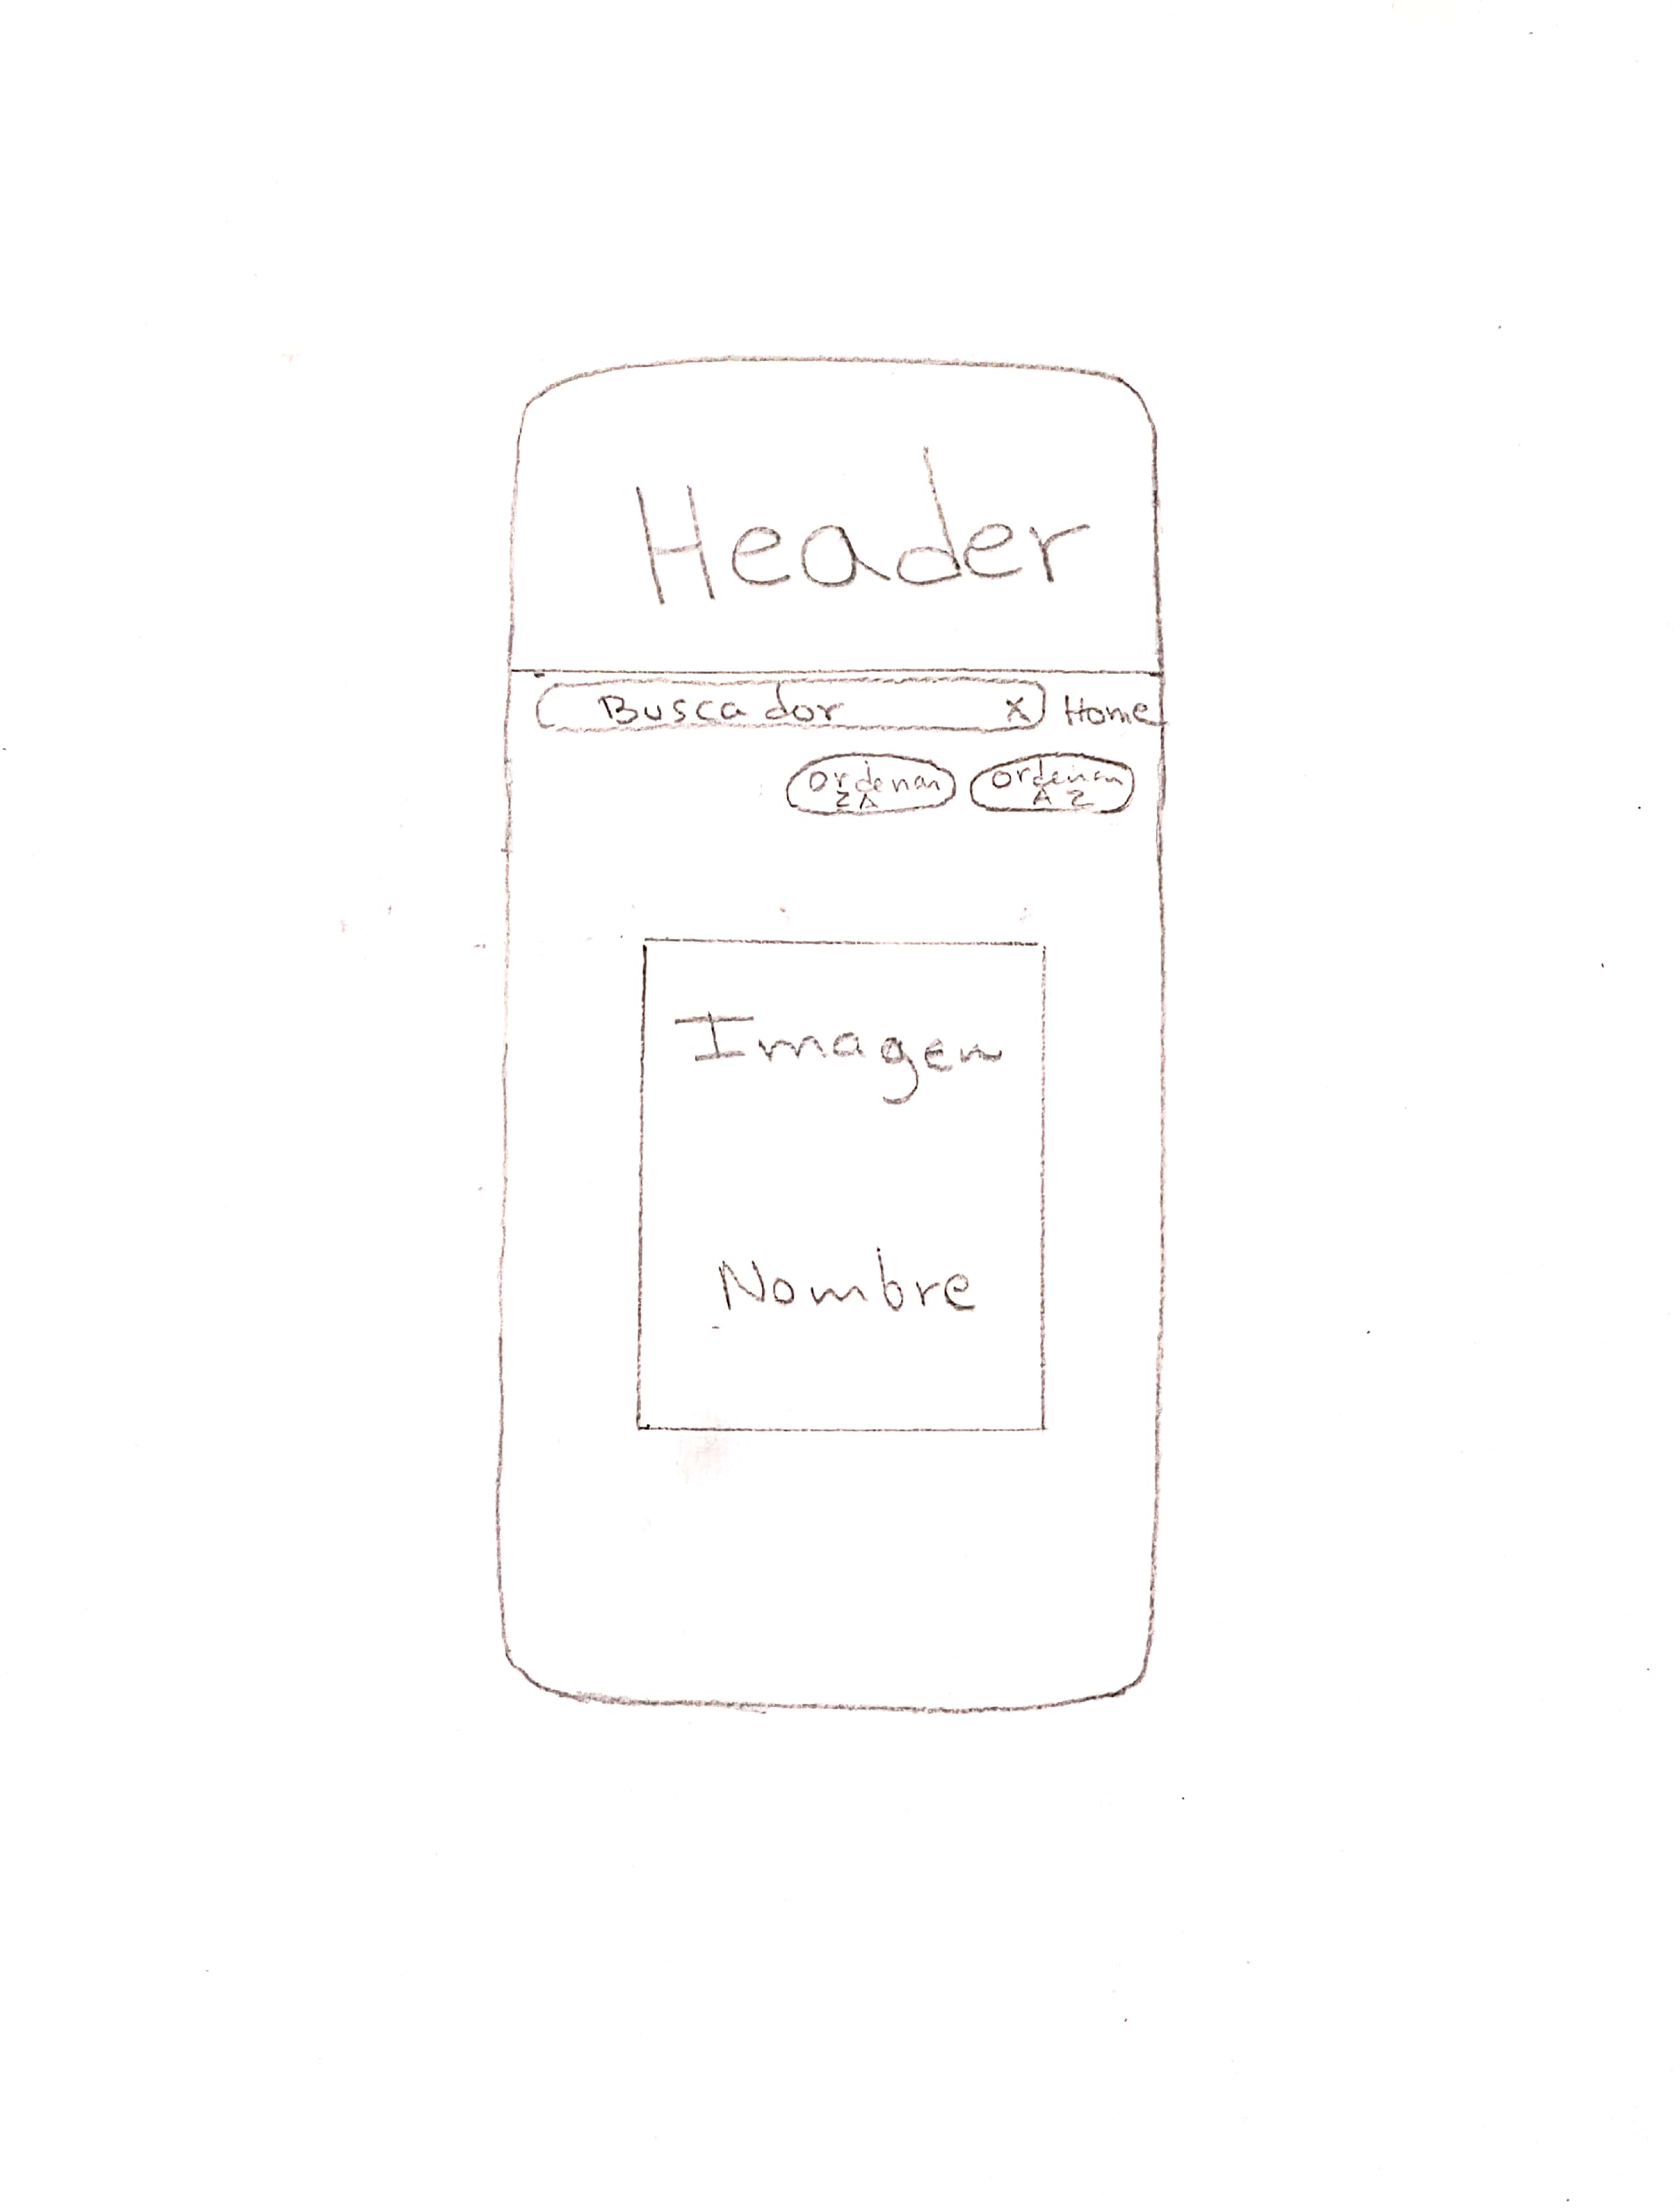 Header
Buscador X Home
Ordenar Ordenar
ZA AZ
Imagen
Nombre